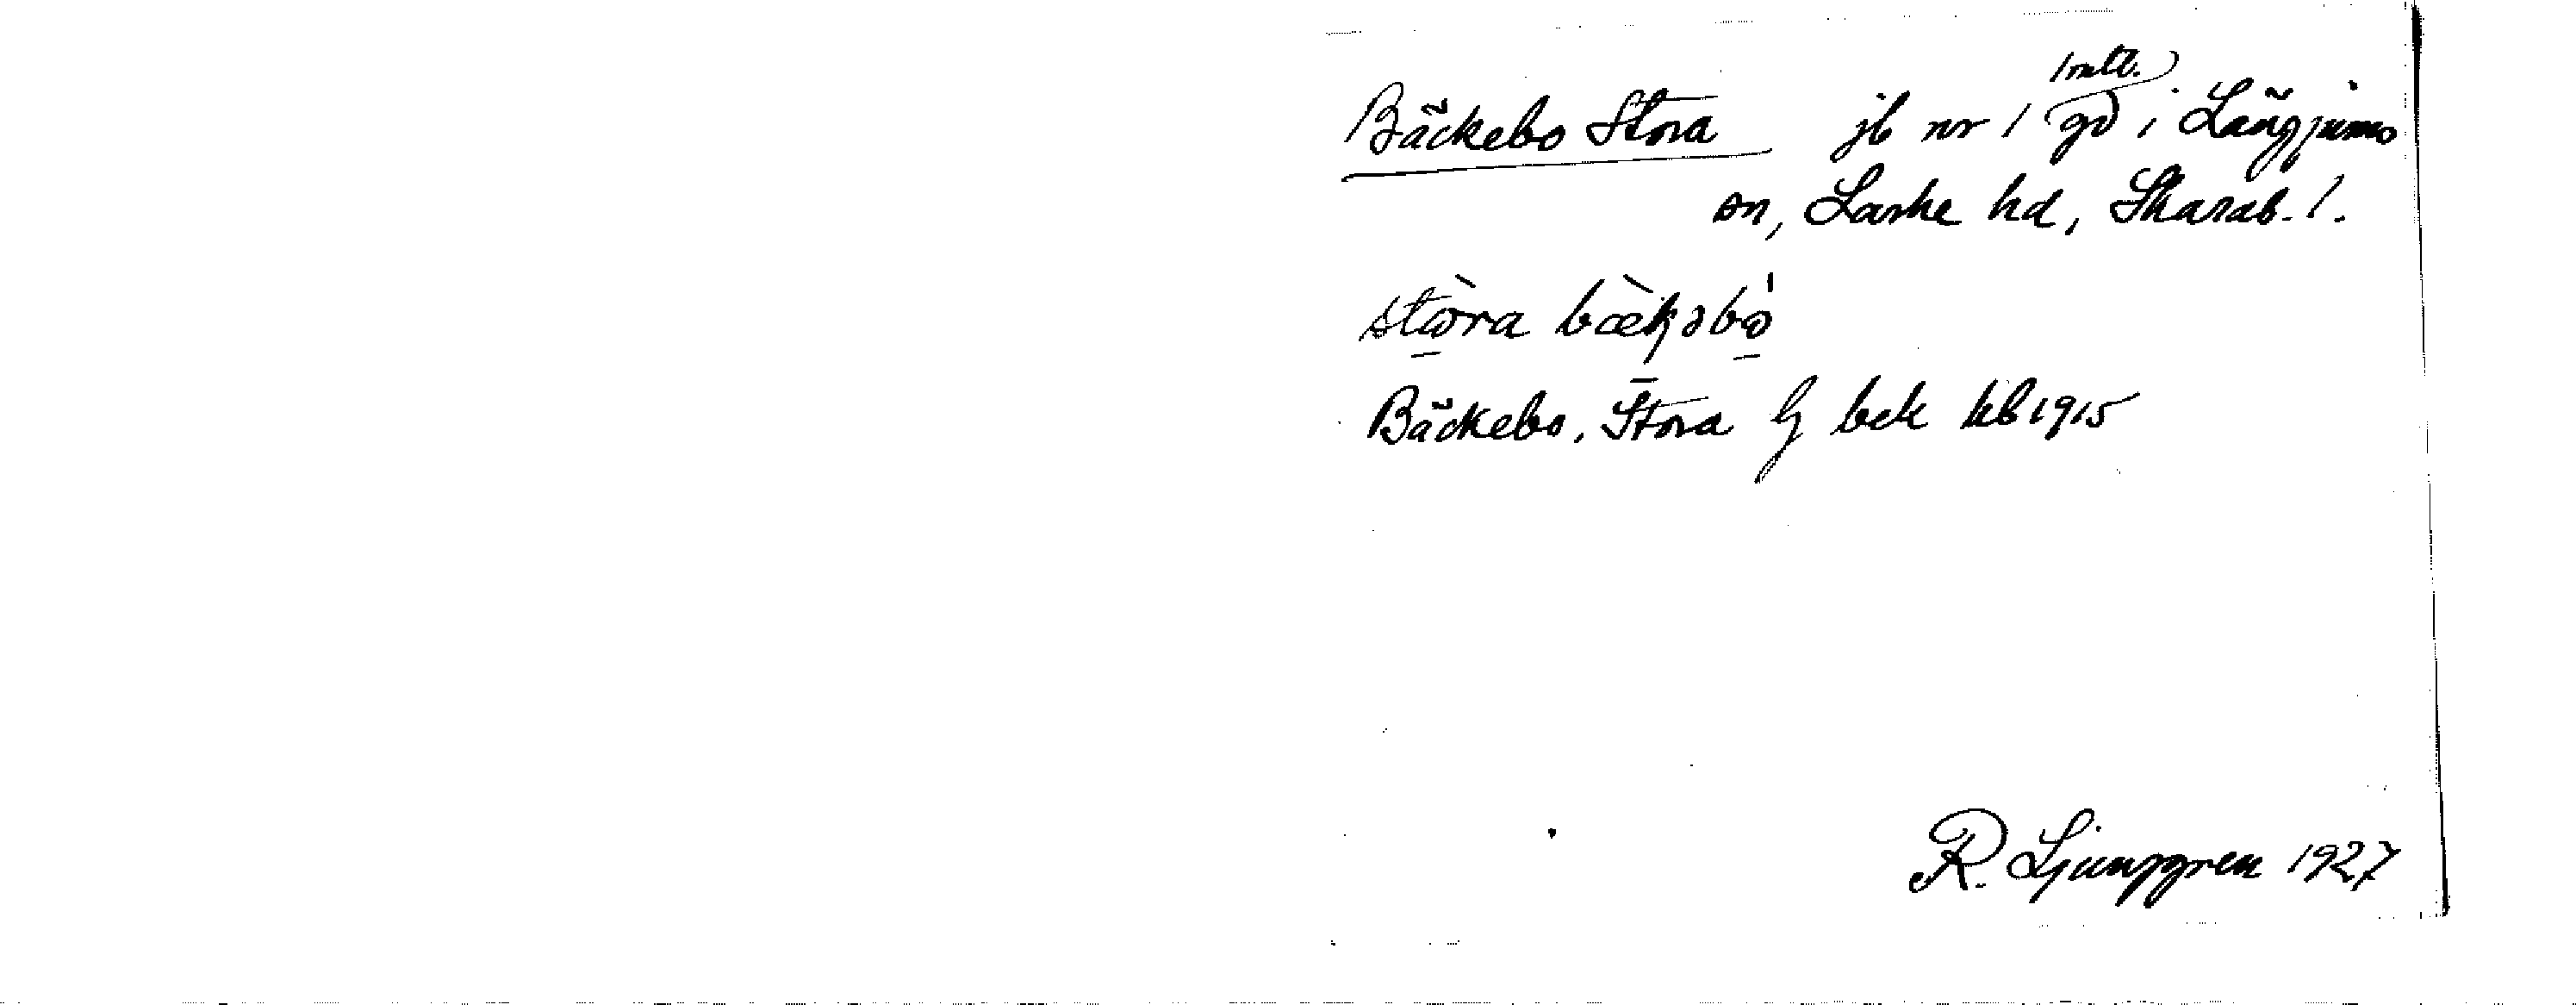 Bäckebo Stora jb nr 1 gd i Långjums
1 mtl.
sn, Laske hd, Skarab. l.
stòra bækəbo
Bäckebo, Stora G bek kb 1915
R. Ljunggren 1927